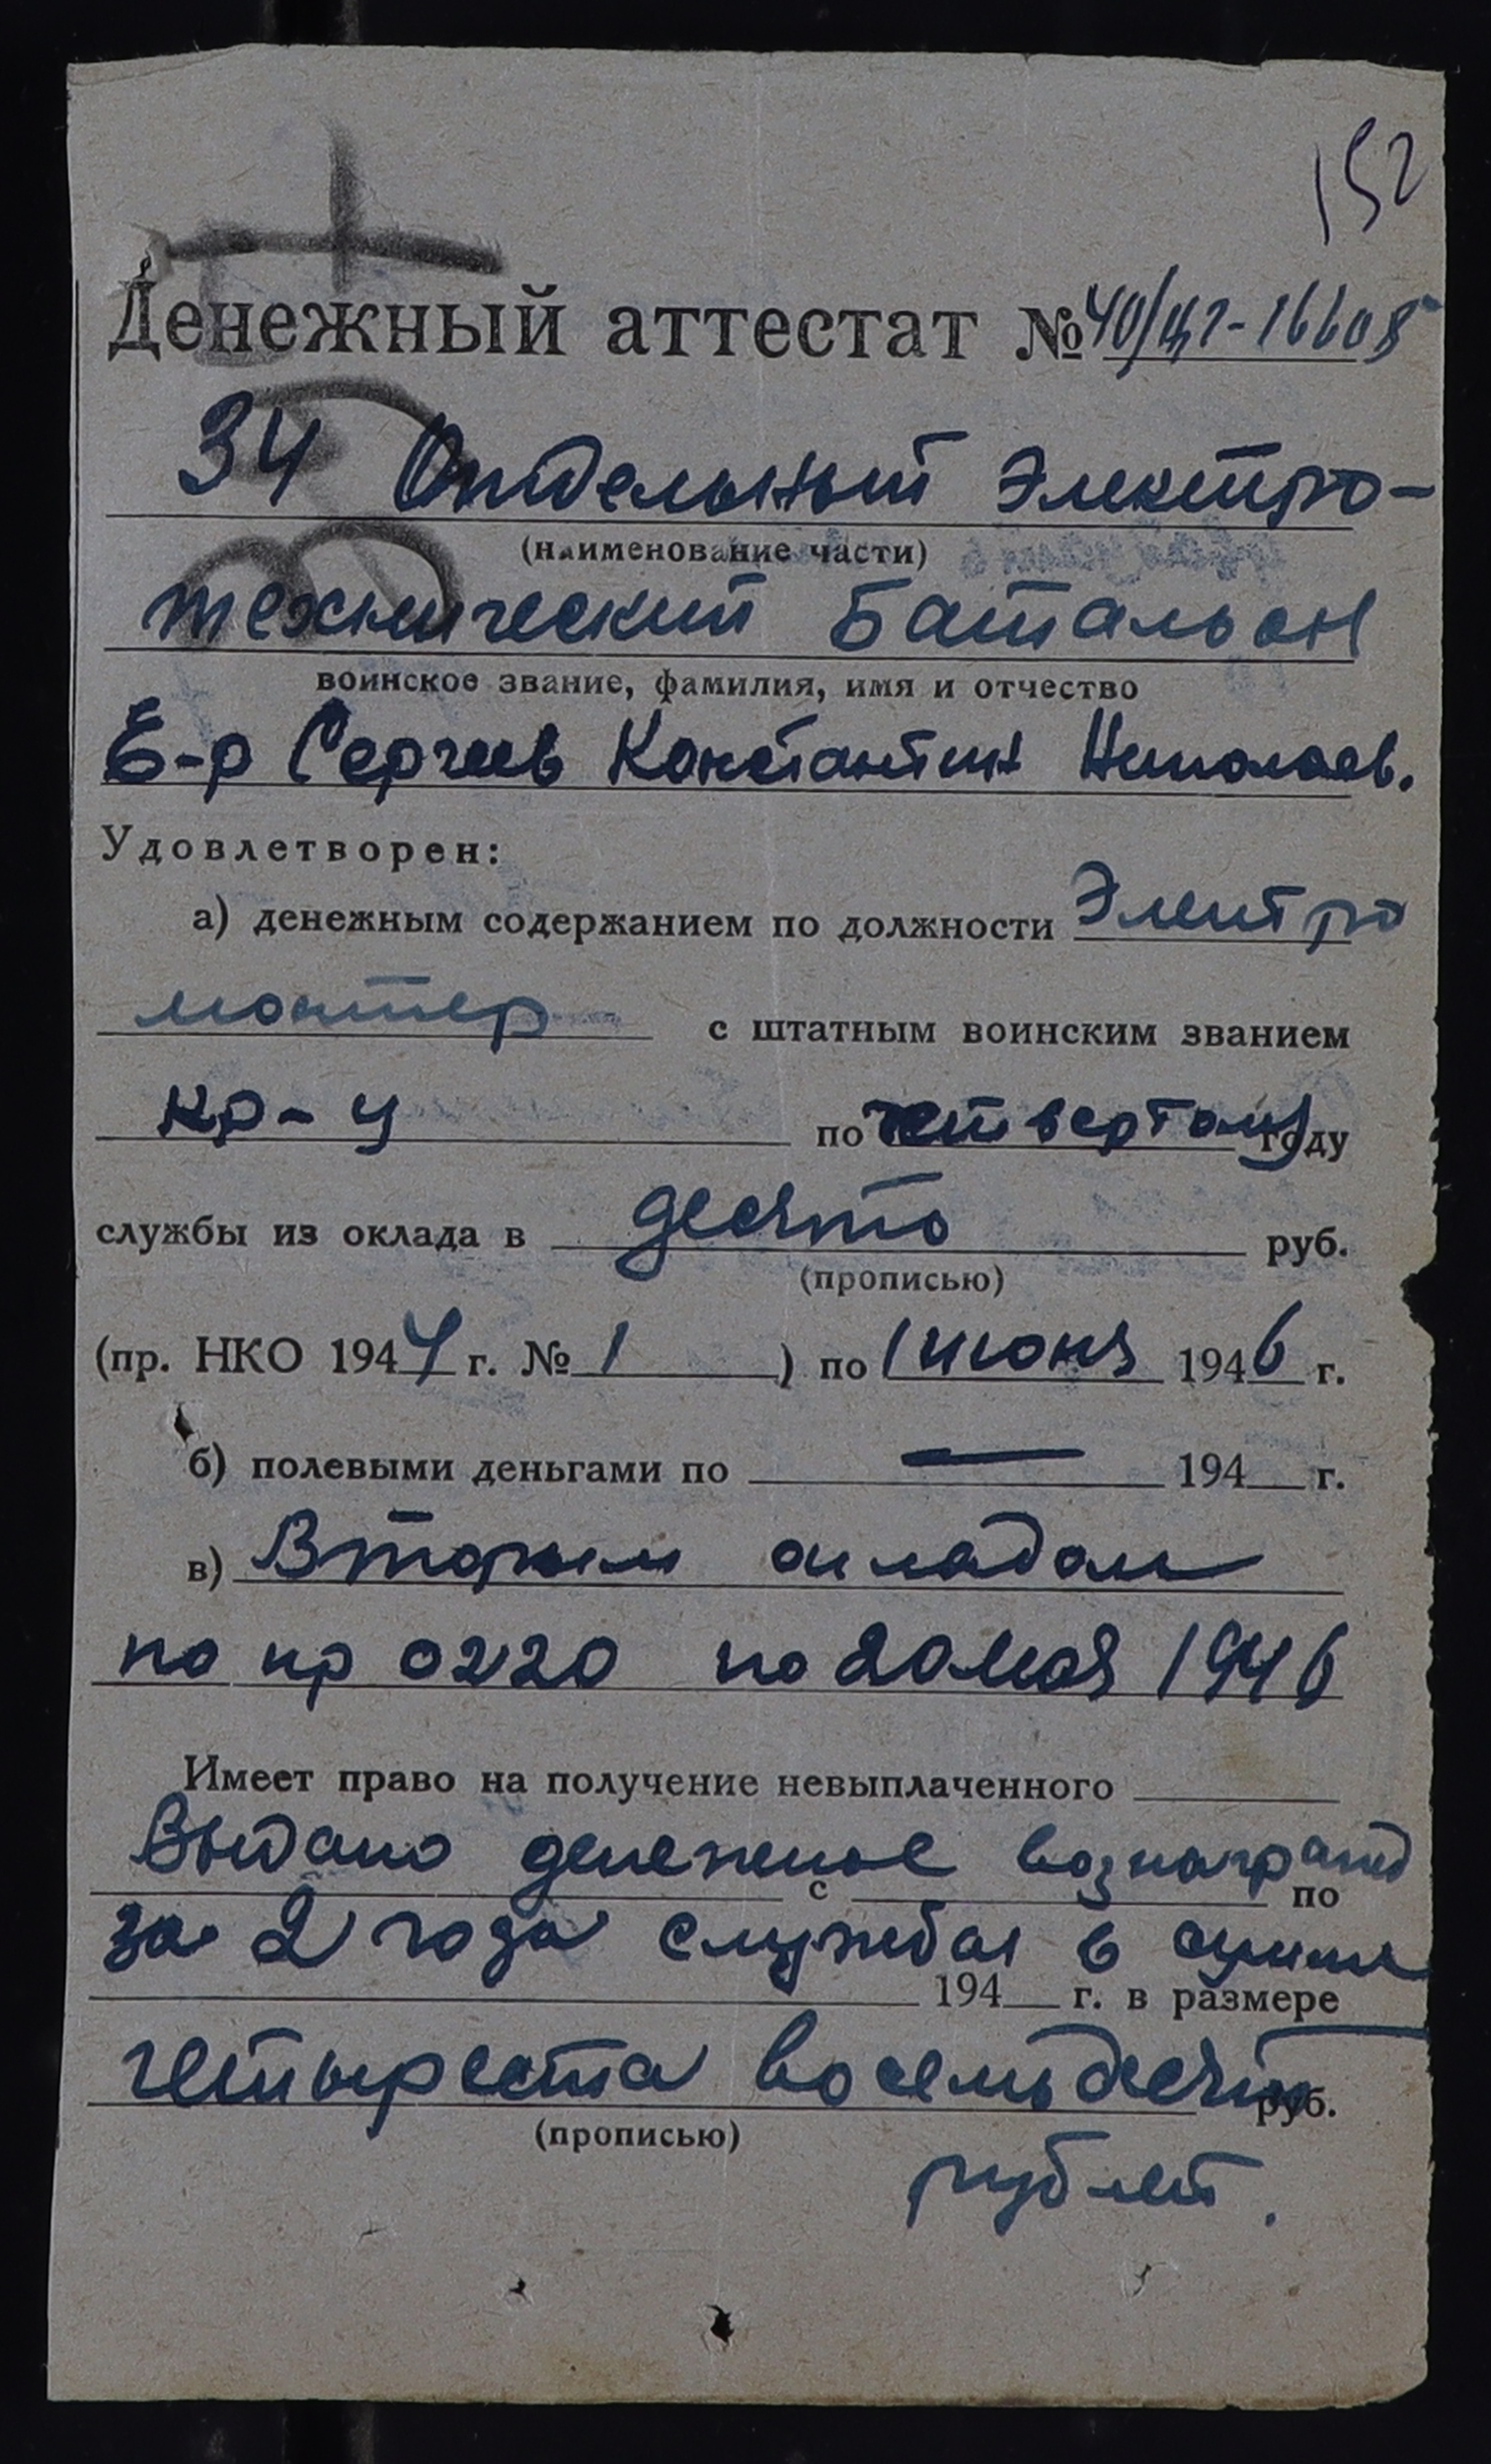 152
Денежный аттестат № 40/ц1-16605
34 Отдельный Электро-
(наименование части)
технический Батальон
воинское звание, фамилия, имя и отчество
Е-р Сергеев Константин Николаев.
Удовлетворен:
а) денежным содержанием по должности Электро
монтер с штатным воинским званием
кр-ц по четвертому году
службы из оклада в десято руб.
(прописью)
(пр. НКО 1944 г. № 1 ) по 1 июня 1946 г.
б) полевыми деньгами по — 194 г.
в) Вторым окладом
по пр 0220 по 20 мая 1946
Имеет право на получение невыплаченного
Выдано денежное вознагражд
с по
за 2 года службы в сумме
194 г. в размере
четыреста восемьдесят руб.
(прописью)
рублей.